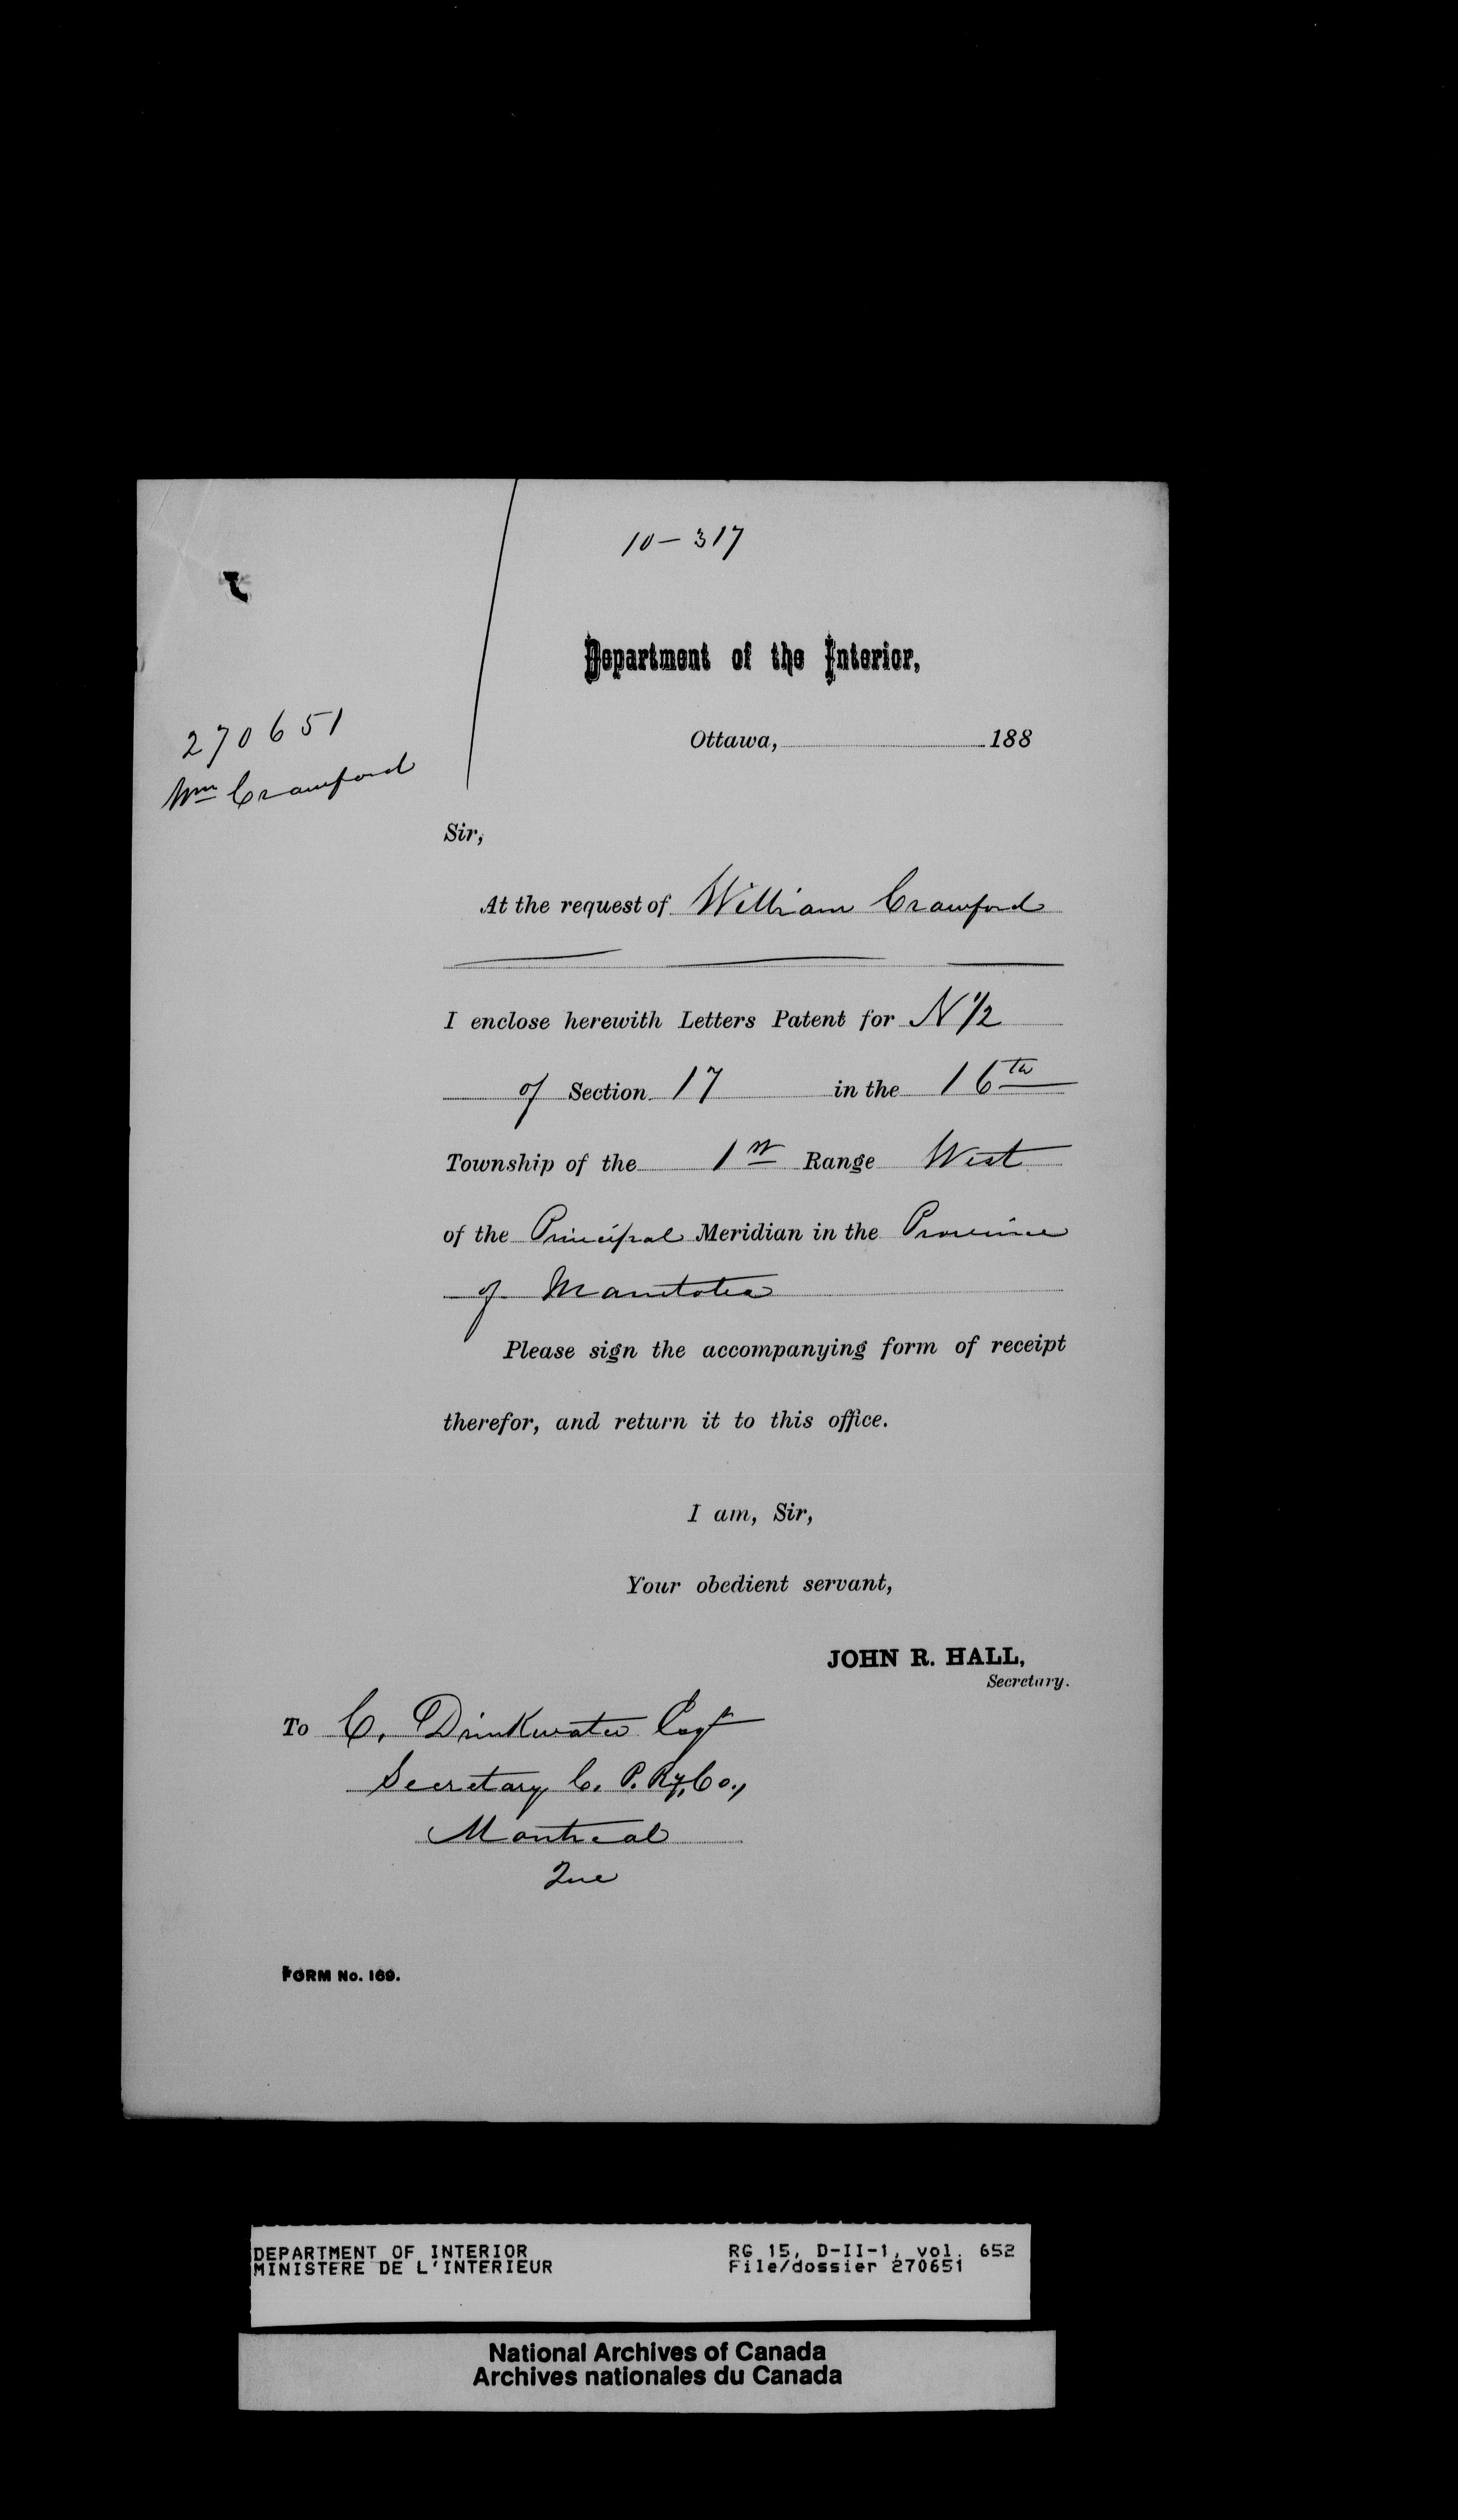 10-317
Department of the Interior,
Ottawa, 188
270651
Wm Crawford
Sir,
At the request of William Crawford
I enclose herewith Letters Patent for N 1/2
of Section 17 in the 16th
Township of the 1st Range West
of the Principal Meridian in the Province
of Manitoba
Please sign the accompanying form of receipt
therefor, and return it to this office.
I am, Sir,
Your obedient servant,
JOHN R. HALL,
Secretary.
To C. Drinkwater Esqr
Secretary C. P. Ry. Co.,
Montreal
Que
FORM No. 169.
DEPARTMENT OF INTERIOR RG 15, D-II-1, vol. 652
MINISTERE DE L'INTERIEUR File/dossier 270651
National Archives of Canada
Archives nationales du Canada